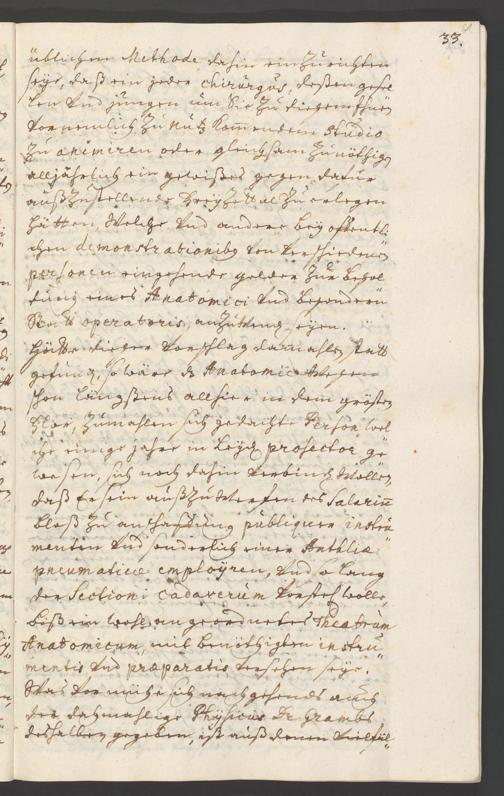 33.
üblichen Methode dahin einzurichten
seye, daß ein jeder Chirurgus, deßen gesel-
len und jungen um Sie zu diesem Ihnen
vornemlich zu nutz kommendem Studio
zu animiren oder gleichsam zunöthigen
alljährlich ein gewißes gegen darur
außzustellende Freyzettel zu erlegen
hätten, Welche und andere bey offentli-
chen demonstrationibus von verschiedenen
personen eingehende gelder zur besol-
dung eines Anatomici und besondern
Statt operatoris, anzuwenden seyen.
Hätte dieser Vorschlag damahlen statt
gefunden, so wäre das Anatomie Wesen
schon längstens allhier in dem grösten
Flor, zumahlen sich gedachte Person wel-
che einige Jahre in Leyden prosector ge-
wesen, sich noch dahin verbinden wollen,
daß Er sein außzuwerfendes Salarium
bloß zu anschaffung publiquer instru-
menten und sonderlich einer Anthliae
pneumaticae employren, und so lang
der Sectioni cadaverum vorstehen wolle,
biß ein wohl angeordnetes Theatrum
Anatomicum, mit benöthigten instru-
mentis und praeparatis versehen seye.
Was vor mühe sich nachgehends auch
der dahmahlige Physicus Dr. Grambs
deshalben gegeben, ist auß denen vielfäl-